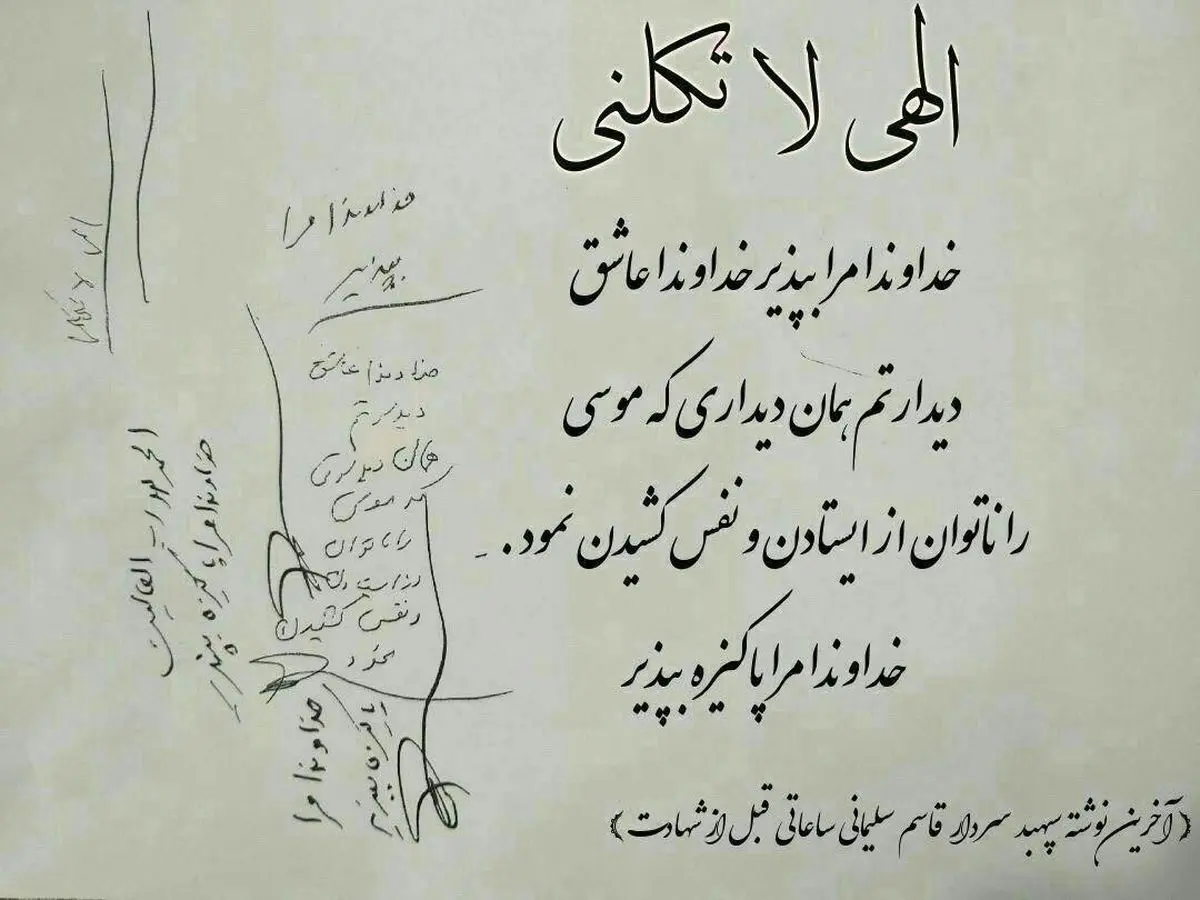 الهی لا تکلنی
خداوندا مرا بپذیر خداوندا عاشق
دیدارتم همان دیداری که موسی
را ناتوان از ایستادن و نفس کشیدن نمود. -
خداوندا مرا پاکیزه بپذیر
(آخرین نوشته سپهبد سردار قاسم سلیمانی ساعاتی قبل از شهادت)
خداوندا مرا
بپذیر
خداوندا عاشق
دیدارتم
همان دیداری
که موسی
را ناتوان
از ایستادن
و نفس کشیدن
نمود
خداوندا مرا
پاکیزه بپذیر
الحمد لله رب العالمین
خداوندا مرا پاکیزه بپذیر
الهی لا تکلنی